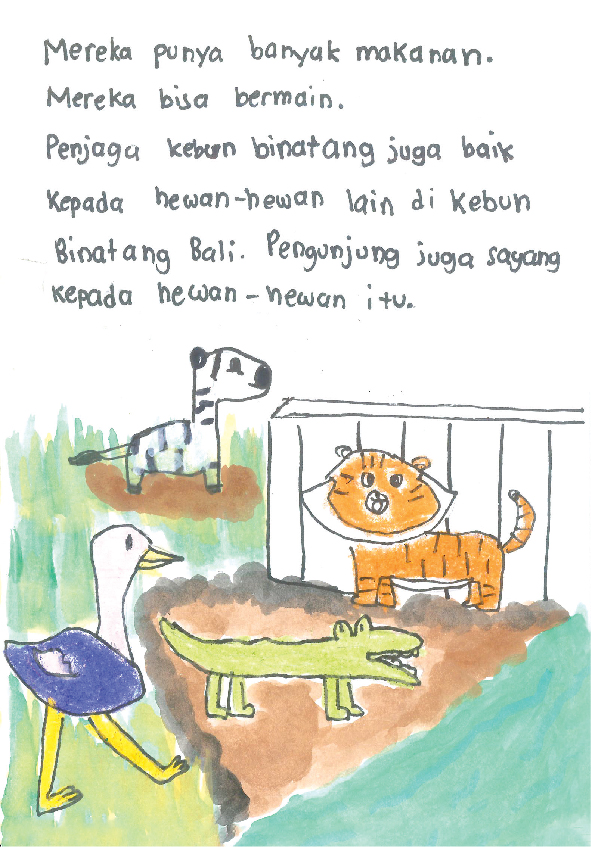 Mereka punya banyak makanan.
Mereka bisa bermain.
Penjaga kebun binatang juga baik
kepada hewan-hewan lain di kebun
Binatang Bali. Pengunjung juga sayang
kepada hewan-hewan itu.